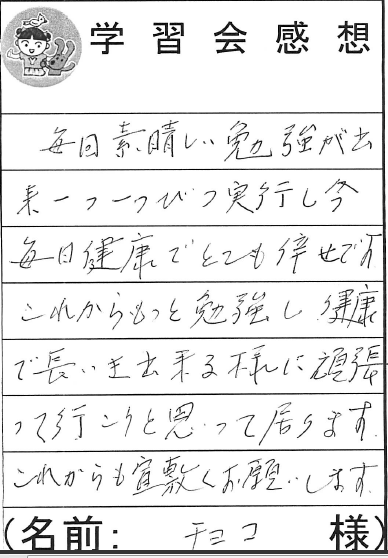 学習会感想
毎回素晴しい勉強が出
来一つ一つびつ実行し今
毎日健康でとても倖せです
これからもっと勉強し健康
で長いき出来る様に頑張
って行こうと思って居ります。
これからも宜敷くお願いします。
(名前: チヨコ 様)